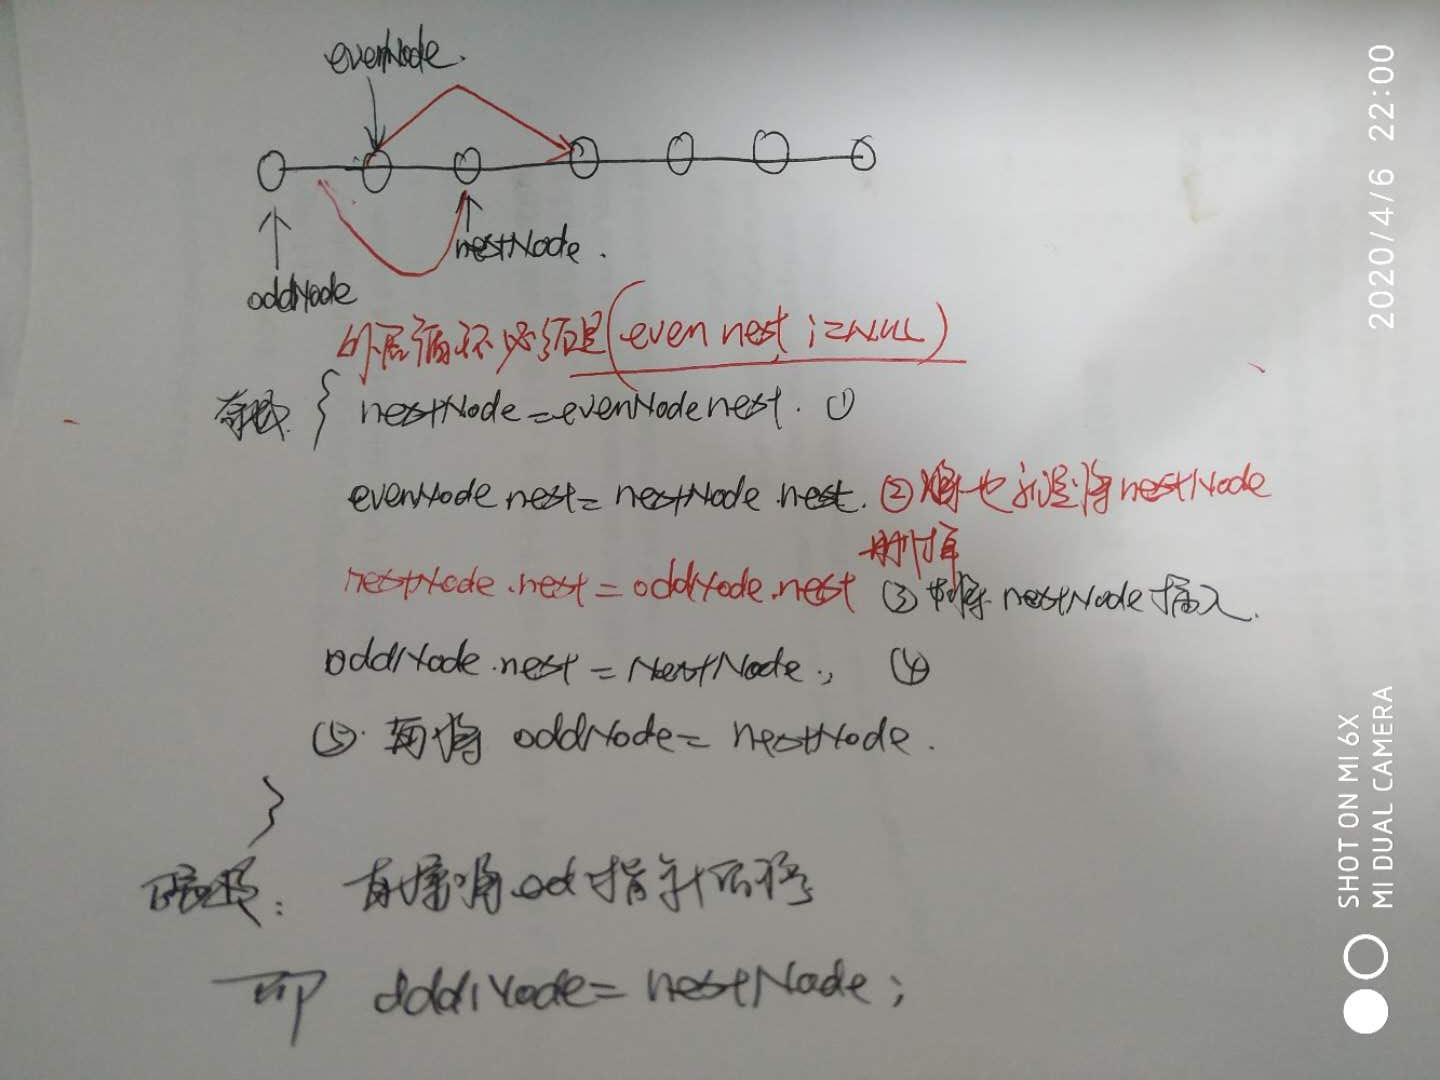 evenNode.
nestNode.
oddNode
外层循环必须是(even nest != NULL)
奇段 { nestNode = evenNode nest. ①
evenNode nest = nestNode.nest. ② 也就是将nestNode
删掉
nestNode.nest = oddNode.nest ③ 将 nestNode 插入.
oddNode.nest = NextNode., ④
⑤. 将 oddNode = nestNode.
}
偶段: 直接将 od 指针后移
即 oddNode = nestNode;
2020/4/6 22:00
SHOT ON MI 6X
MI DUAL CAMERA